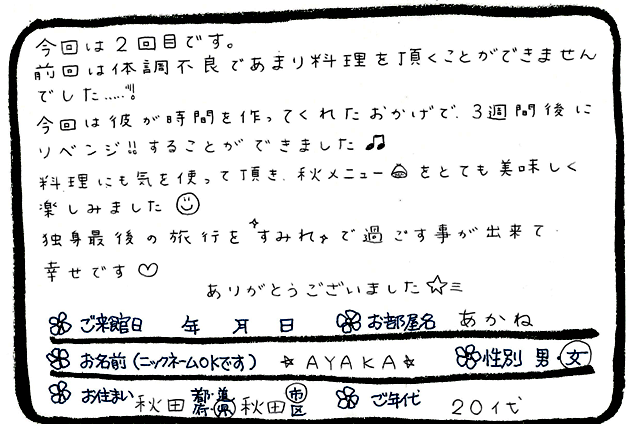 今回は2回目です。
前回は体調不良であまり料理を頂くことができません
でした.....!!
今回は彼が時間を作ってくれたおかげで、3週間後に
リベンジ!!することができました♫
料理にも気を使って頂き、秋メニュー🌰をとても美味しく
楽しみました☺
独身最後の旅行を"すみれ"で過ごす事が出来て
幸せです♡
ありがとうございました☆彡
ご来館日 年 月 日 お部屋名 あかね
お名前(ニックネームOKです) ☆AYAKA☆ 性別 男・女
お住まい 秋田 都・道・府・県 秋田 市・区 ご年代 20代